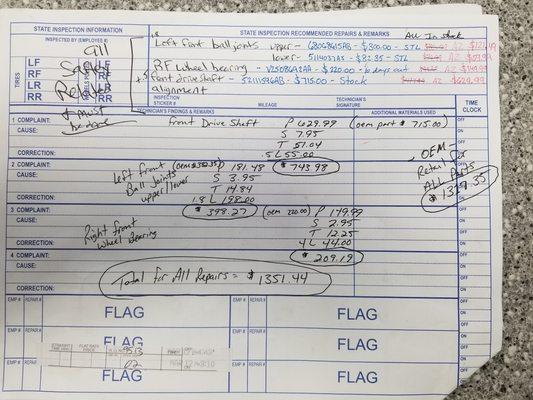 STATE INSPECTION INFORMATION
STATE INSPECTION RECOMMENDED REPAIRS & REMARKS
INSPECTED BY (EMPLOYEE #)
All In stock
all
safety
Related
& must
be done
TIRES
LF
RF
LR
RR
LF
RF
LR
RR
Left front ball joints upper - 68069645AB - $300.00 - STL AZ
lower - 5114037AB - $82.35 - STL AZ
RF wheel bearing - $220.00 - AZ
font driveshaft - 52111596AB - $715.00 - Stock AZ
alignment
INSPECTION STICKER #
MILEAGE
TECHNICIAN'S SIGNATURE
TECHNICIAN'S FINDINGS & REMARKS
ADDITIONAL MATERIALS USED
TIME CLOCK
1 COMPLAINT:
front Drive Shaft P 629.99 (oem part $715.00)
CAUSE:
S 7.95
T 51.04
CORRECTION:
5 L 55.00
$743.98
- OEM -
Retail for
ALL Parts
$1339.35
2 COMPLAINT:
Left front (oem $382.35) P 181.48
CAUSE:
Ball Joints S 3.95
upper/lower T 14.84
CORRECTION:
1.8 L 198.00
$398.27
3 COMPLAINT:
(oem 220.00) P 149.99
CAUSE:
Right front S 2.95
wheel Bearing T 12.25
CORRECTION:
4 L 44.00
$209.19
4 COMPLAINT:
CAUSE:
Total for All Repairs = $1351.44
CORRECTION:
EMP # REPAIR# EMP # REPAIR#
FLAG FLAG
EMP # REPAIR# EMP # REPAIR#
FLAG FLAG
EMP # REPAIR EMP # REPAIR#
FLAG FLAG